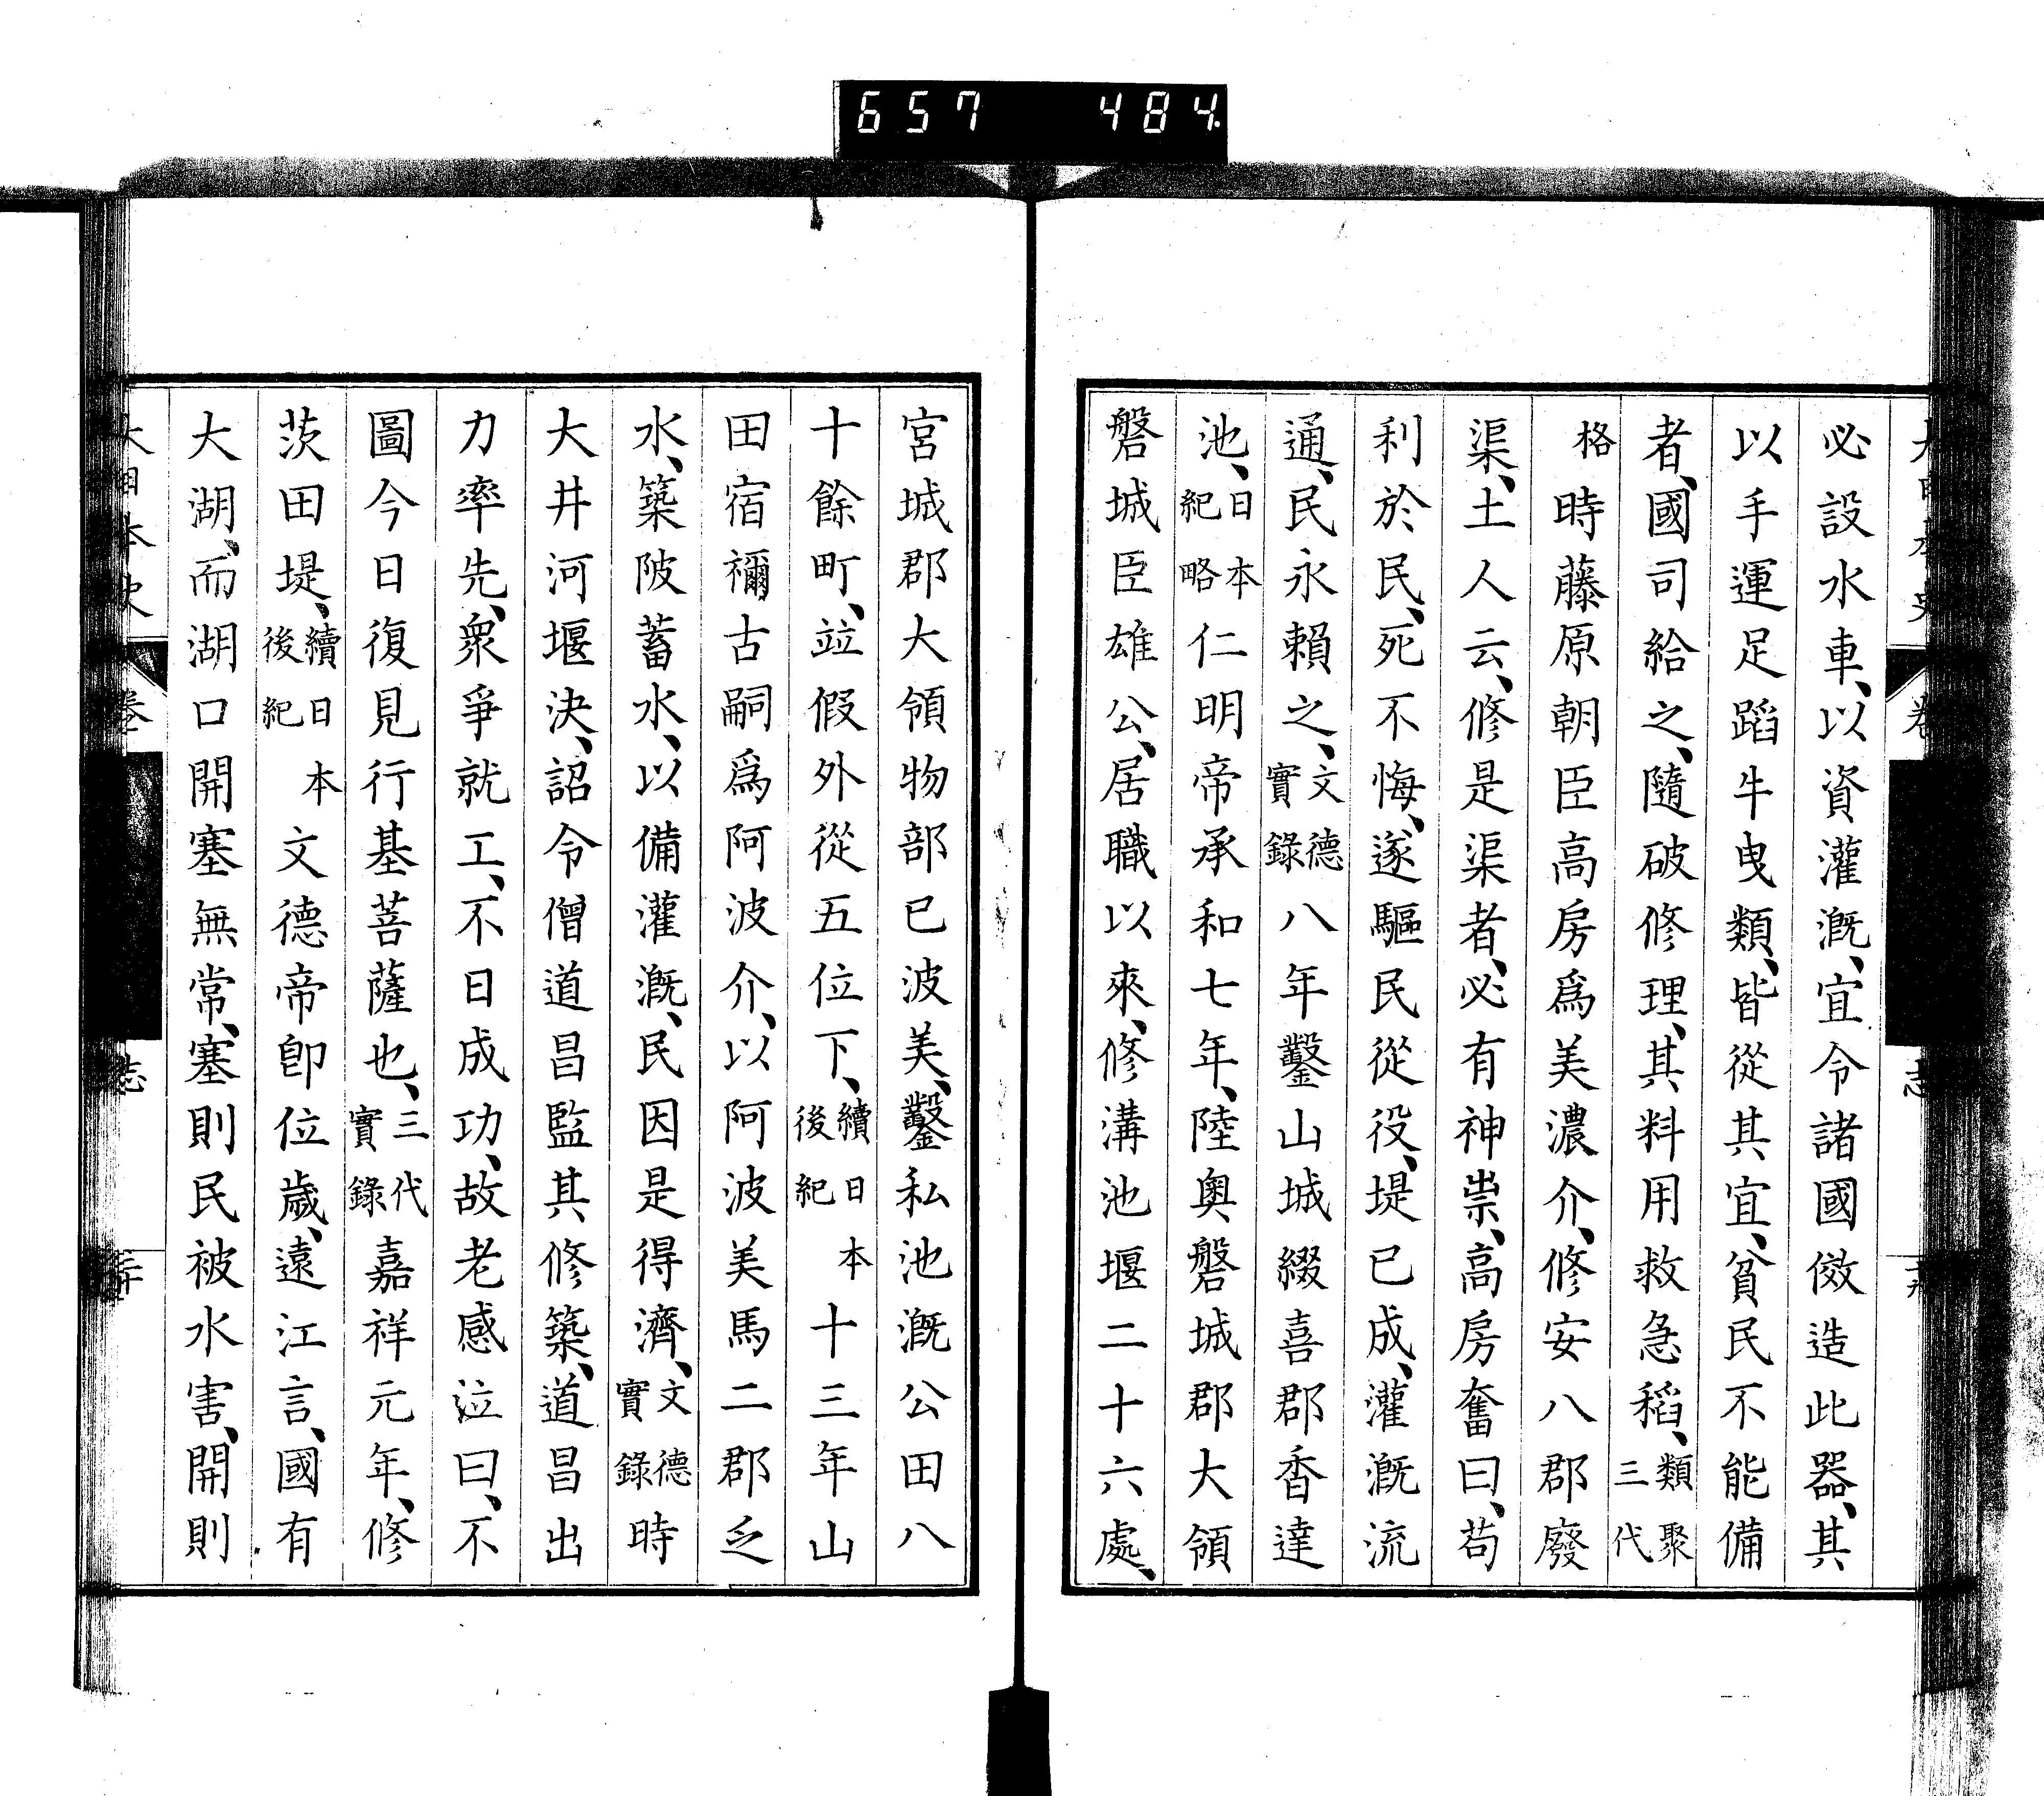 657 484
必設水車、以資灌漑、宜令諸國倣造此器、其
以手運足蹈牛曳類、皆從其宜、貧民不能備
者、國司給之、隨破修理、其料用救急稻、類聚三代
格時藤原朝臣高房爲美濃介、修安八郡廢
渠、土人云、修是渠者、必有神祟、高房奮曰、苟
利於民、死不悔、遂驅民從役、堤已成、灌漑流
通、民永賴之、文德實錄八年鑿山城綴喜郡香達
池、日本紀略仁明帝承和七年、陸奧磐城郡大領
磐城臣雄公、居職以來、修溝池堰二十六處、
宮城郡大領物部已波美、鑿私池漑公田八
十餘町、竝假外從五位下、續日本後紀十三年山
田宿禰古嗣爲阿波介、以阿波美馬二郡乏
水、築陂蓄水、以備灌漑、民因是得濟、文德實錄時
大井河堰決、詔令僧道昌監其修築、道昌出
力率先、衆爭就工、不日成功、故老感泣曰、不
圖今日復見行基菩薩也、三代實錄嘉祥元年、修
茨田堤、續日本後紀文德帝卽位歲、遠江言、國有
大湖、而湖口開塞無常、塞則民被水害、開則